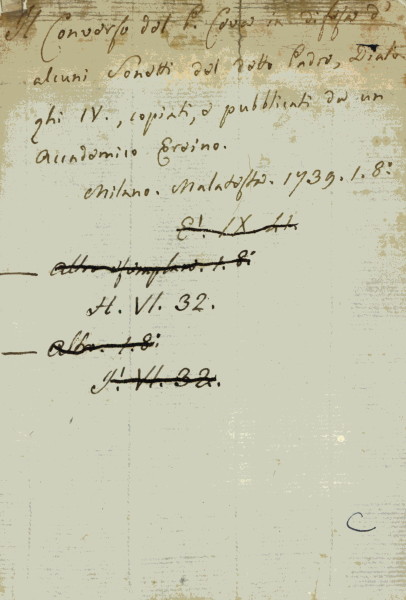 Il Converso del P. Ceva in difesa d'
alcuni Sonetti del detto Padre, Dialo-
ghi IV., copiati, e pubblicati da un
Accademico Ercino.
Milano. Malatesta. 1739. 1. 8º
E! IX 41.
Altro esemplare. 1. 8º
H. VI. 32.
Altro. 1. 8º
I! VI. 32.
C